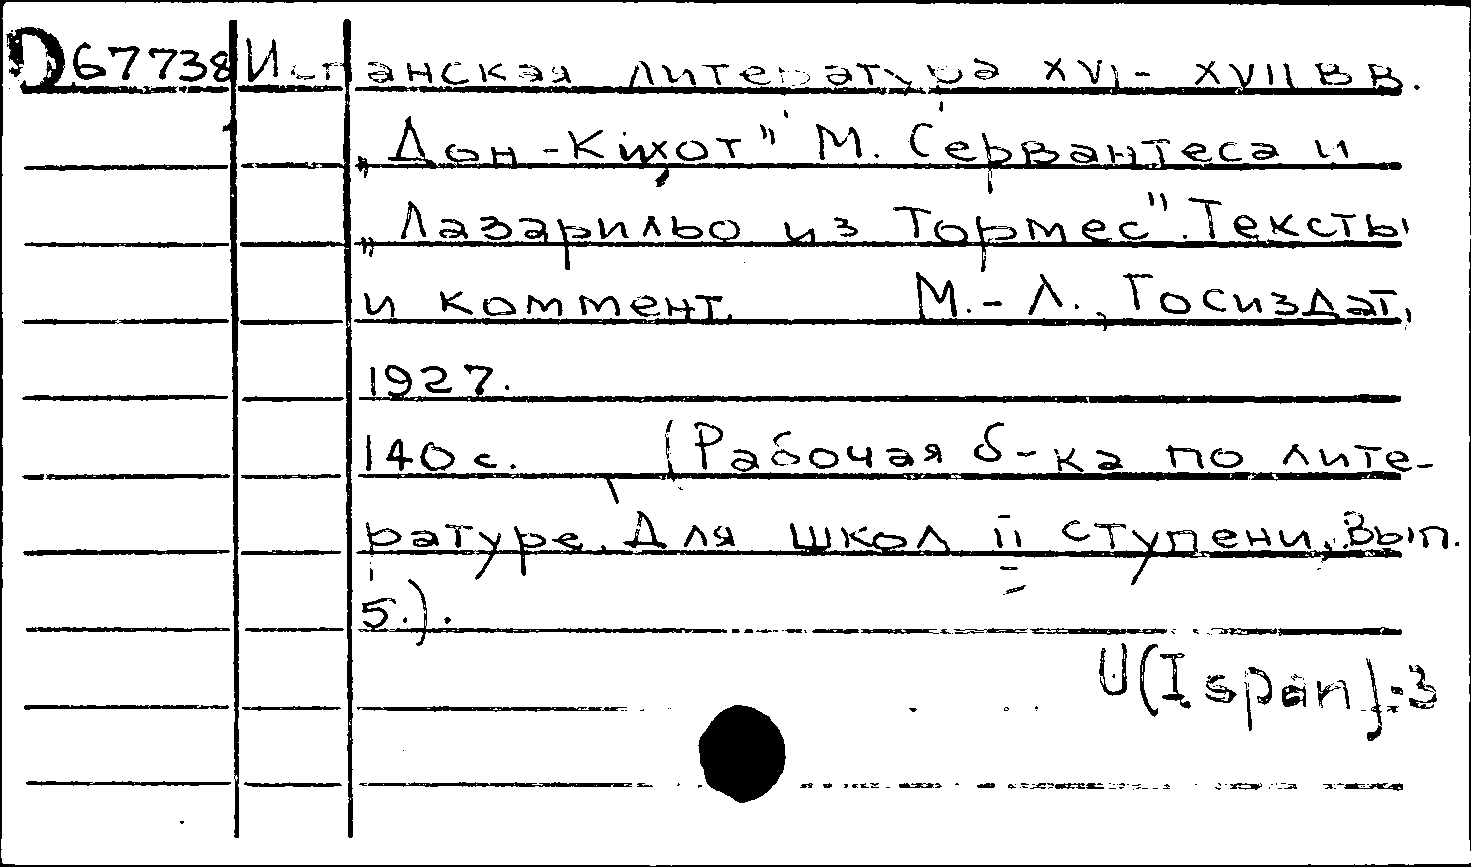 D67738 Испанская литература XVI - XVII вв.
„Дон-Кихот" М. Сервантеса и
„Лазарильо из Тормес". Тексты
и коммент. М.-Л., Госиздат,
1927.
140 с. (Рабочая б-ка по лите-
ратуре. Для школ II ступени, Вып.
5.).
U(Ispan):3